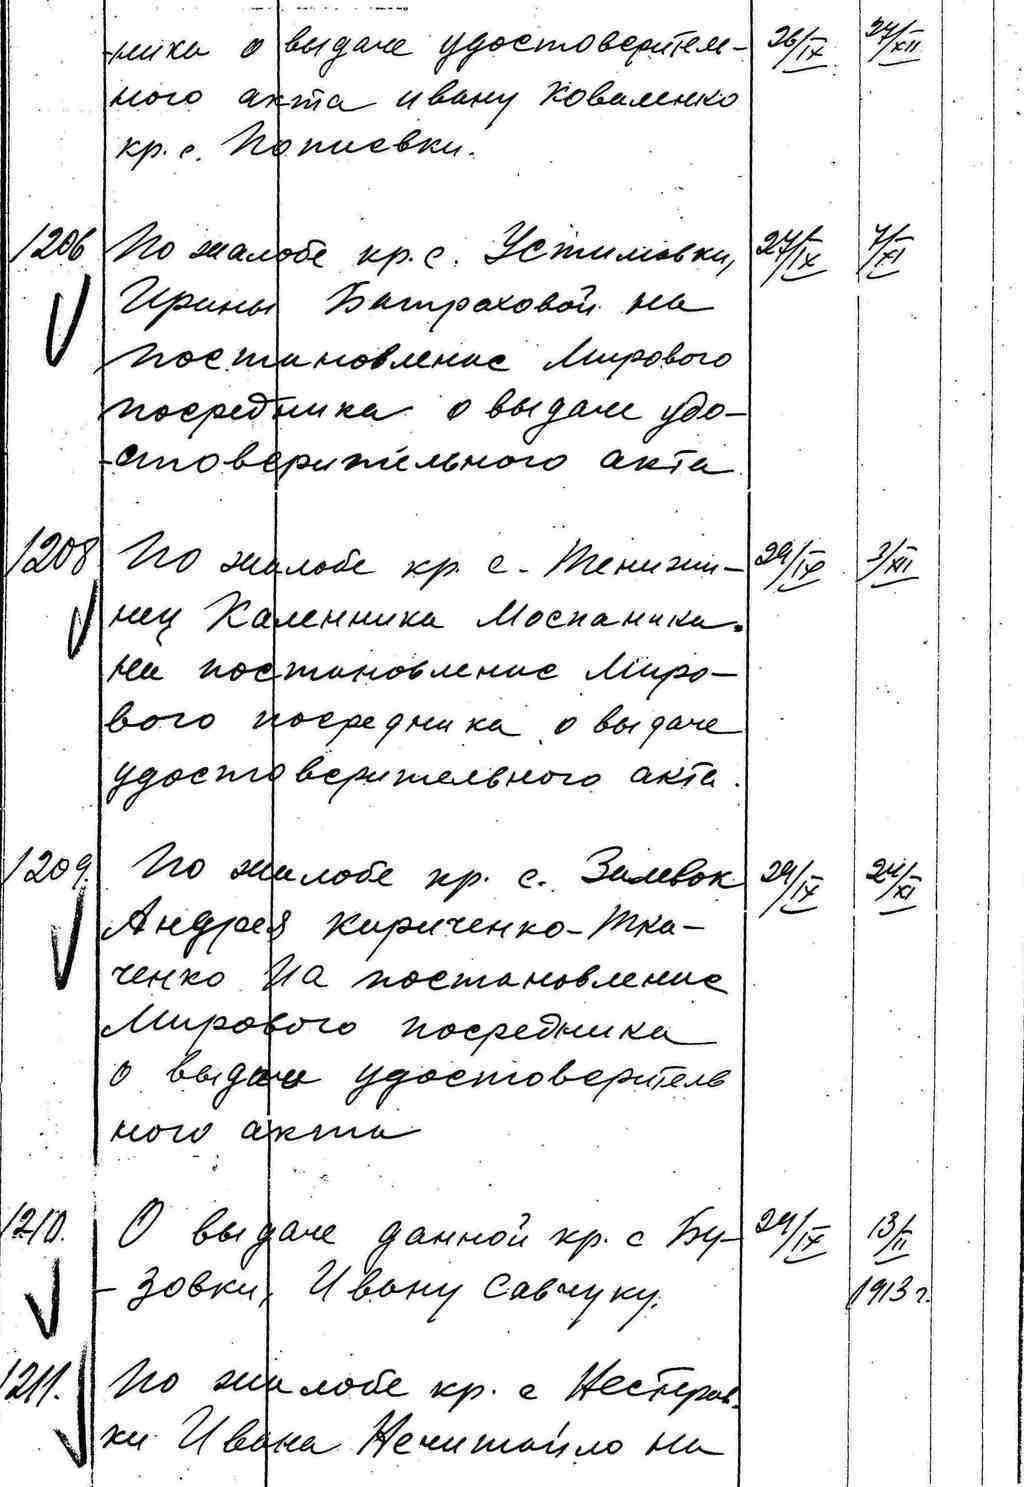 -ника о выдаче удостоверитель- 26/IX 24/XII
ного акта Ивану Коваленко
кр. с. Попиевки.
1206 По жалобе кр. с. Устимовки, 27/IX 7/XI
Ирины Батраховой на
постановление Мирового
посредника о выдаче удо-
-стоверительного акта
1208 По жалобе кр. с. Текижи- 29/IX 3/XII
нец Каленника Моспаника
на постановление Миро-
вого посредника о выдаче
удостоверительного акта.
1209. По жалобе кр. с. Залевок 29/IX 24/XI
Андрея Кириченко-Тка-
ченко На постановление
Мирового посредника
о выдаче удостоверитель
ного акта
1210. О выдаче данной кр. с Бу- 29/IX 13/II
-зовки, Ивану Савчуку. 1913 г.
1211. По жалобе кр. с Нестеров-
ки Ивана Нечитайло на